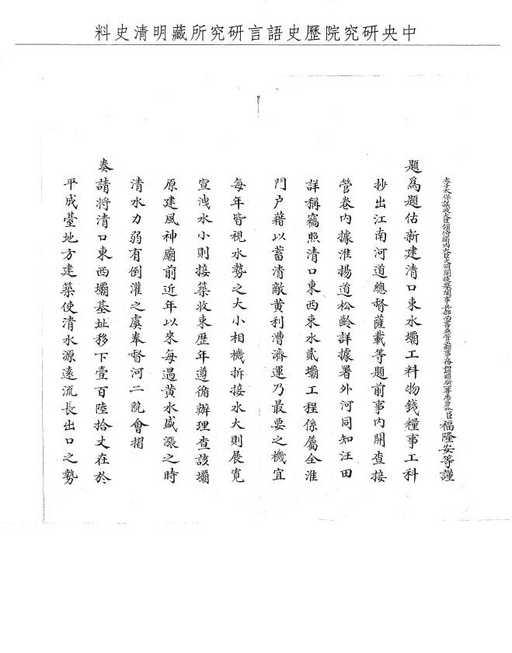 中央研究院歷史語言研究所藏明清史料
福隆安等謹
題為題估新建清口東水壩工料物錢糧事工科
抄出江南河道總督薩載等題前事內開查接
管卷內據淮揚道松齡詳據署外河同知汪田
詳稱竊照清口東西束水貳壩工程係屬全淮
門户藉以蓄清敵黃利漕濟運乃最要之機宜
每年皆視水勢之大小相機拆接水大則展寬
宣洩水小則接築收束歷年遵循辦理查該壩
原建風神廟前近年以來每遇黃水盛漲之時
清水力弱有倒灌之虞奉督河二院會摺
奏請將清口東西壩基址移下壹百陸拾丈在於
平成臺地方建築使清水源遠流長出口之勢